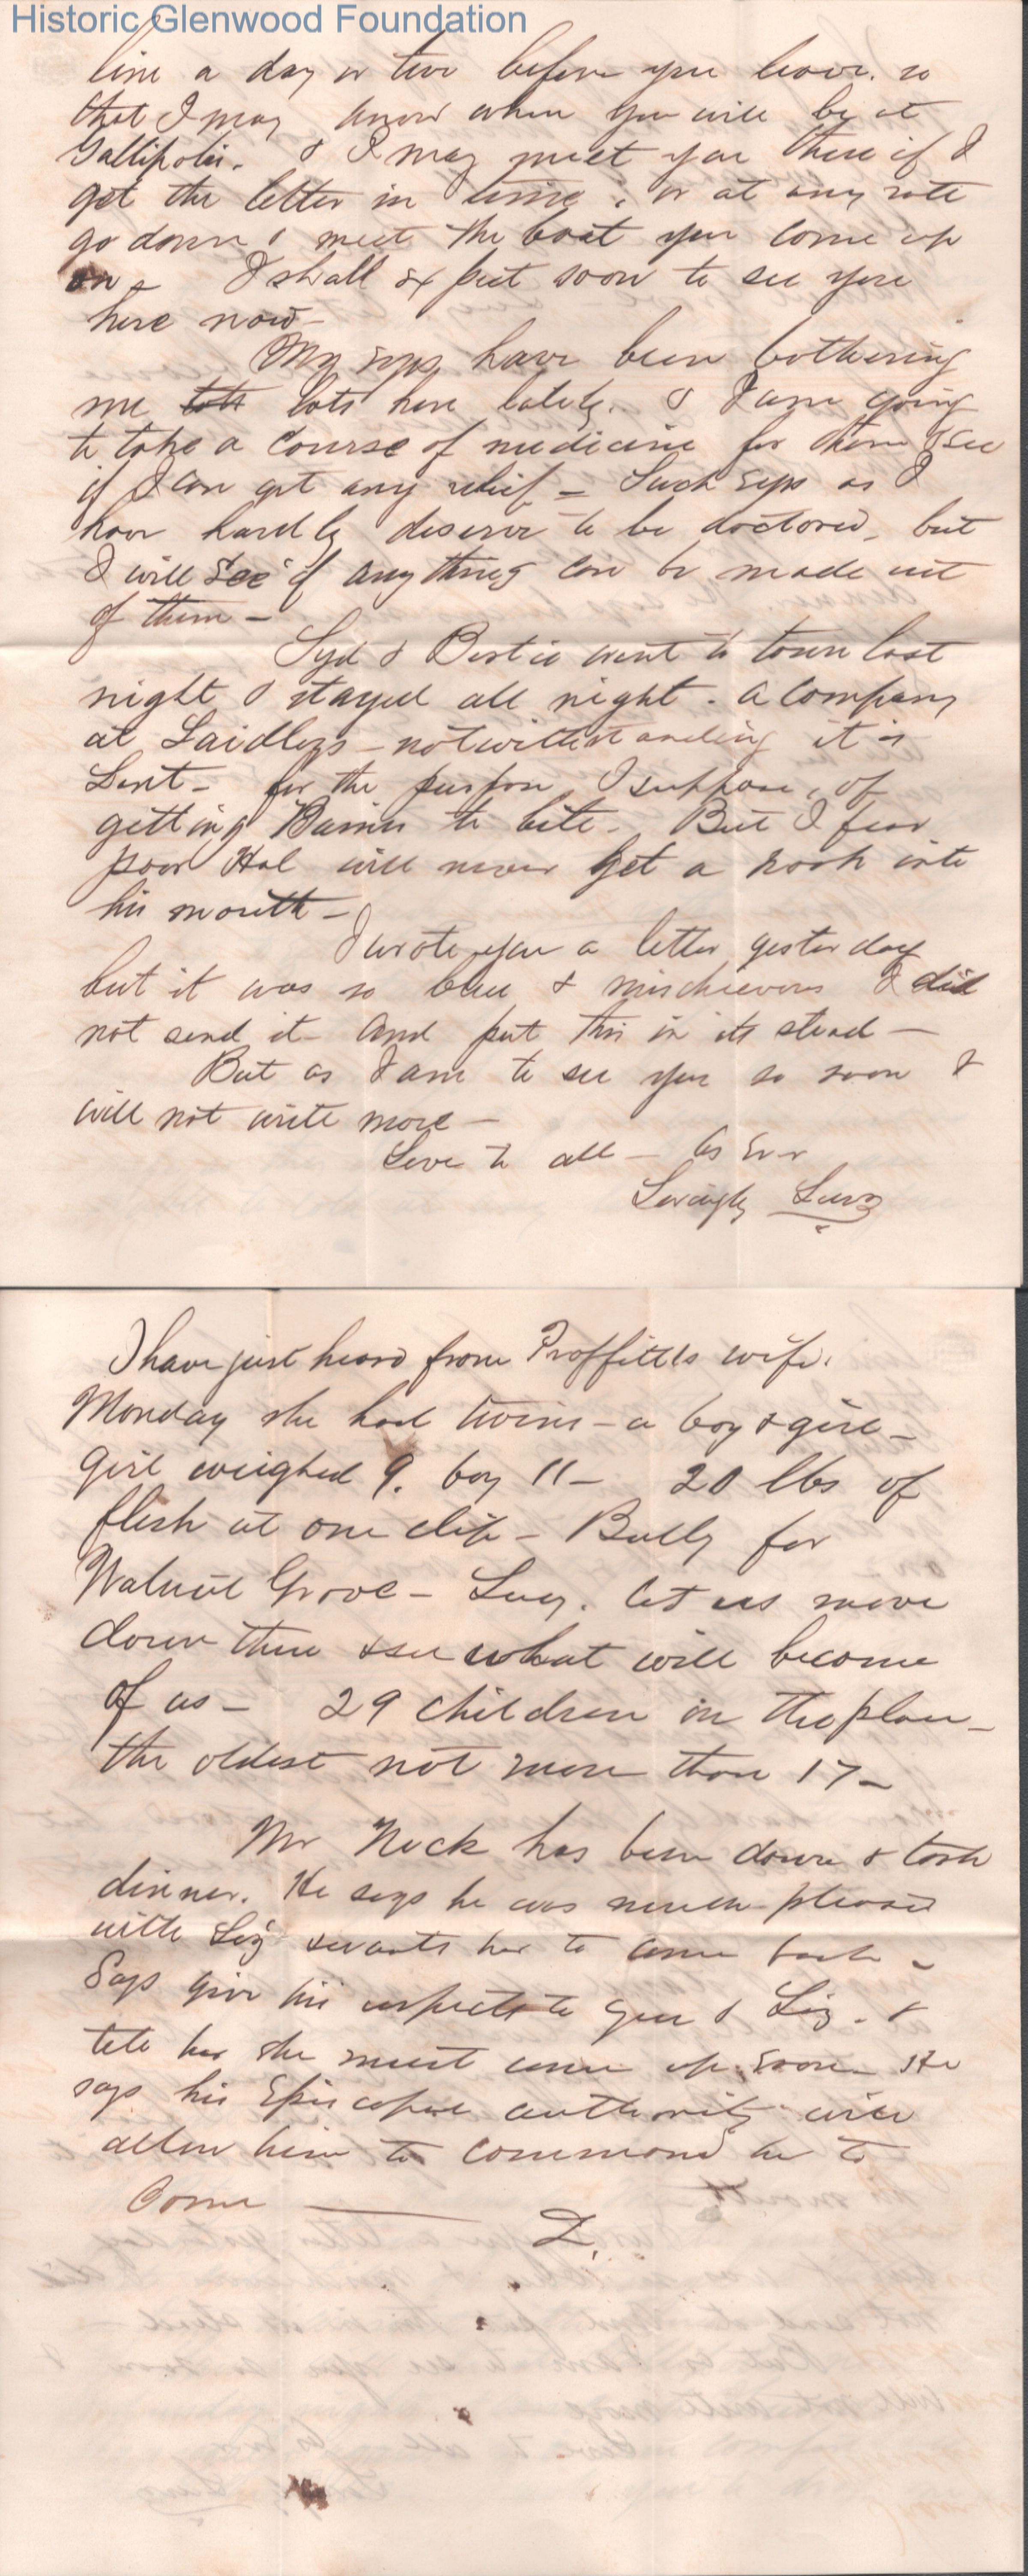 Historic Glenwood Foundation
line a day or two before you leave. so
that I may know when you will be at
Gallipolis. & I may meet you there if I
get the letter in time, or at any rate
go down & meet the boat you come up
on - I shall expect soon to see you
here now -
My eyes have been bothering
me lots here lately. & I am going
to take a course of medicine for them & see
if I can get any relief - Such eyes as I
have hardly deserve to be doctored, but
I will see if any thing can be made out
of them -
Syd & Bertie went to town last
night & stayed all night. a company
at Laidleys - notwithstanding it is
Lent - for the purpose I suppose, of
getting to bite. But I fear
poor Hal will never get a hook into
his mouth -
I wrote you a letter yesterday
but it was so blue & mischievous I did
not send it and put this in its stead -
But as I am to see you so soon I
will not write more -
Love to all - As Ever
Lovingly
I have just heard from Proffitts wife.
Monday she had twins - a boy & girl -
Girl weighed 9. boy 11 - 20 lbs of
flesh at one clip - Bully for
Walnut Grove - Lucy. let us move
down there & see what will become
of us - 29 children on the place -
the oldest not more than 17 -
Mr Nock has been down & took
dinner. He says he was much pleased
with Liz & wants her to come back -
Says give his respects to you & Liz. &
tell her she must come up soon He
says his Episcopal authority will
allow him to command her to
Come
L.